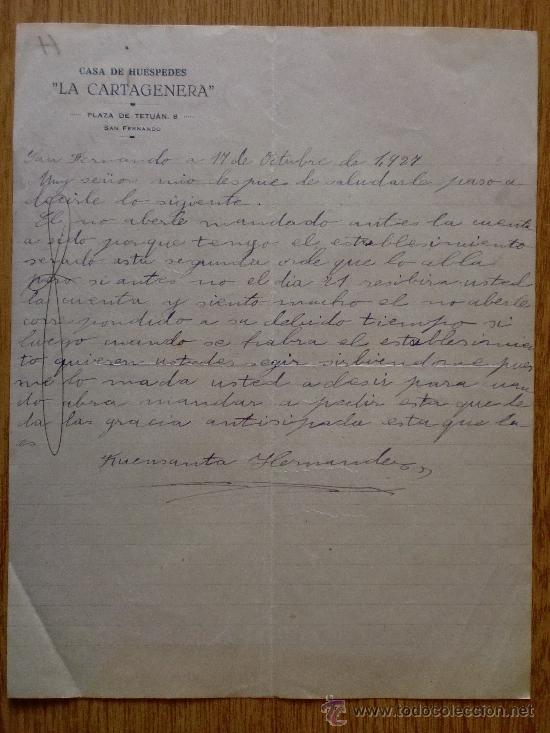 H
CASA DE HUESPEDES
"LA CARTAGENERA"
PLAZA DE TETUÁN, 8
SAN FERNANDO
San Fernando a 17 de Octubre de 1,927
Muy señor mio despues de saludarle paso a
decirle lo sigiente.
El no aberle mandado antes la cuenta
a sido porque tengo el establesimiento
serado asta segunda orde que lo abla
paso si antes no el dia 21 resibira usted
la cuenta y siento mucho el no aberle
correspondido a su debido tiempo si
luego cuando se habra el establesimien
to quieren ustedes segir sirbiendome pues
me lo mada usted a desir para cuan
do abra mandar a pedir esta que le
da las gracia antisipada esta que lo
es
Fuensanta Hernandez
todocoleccion.net